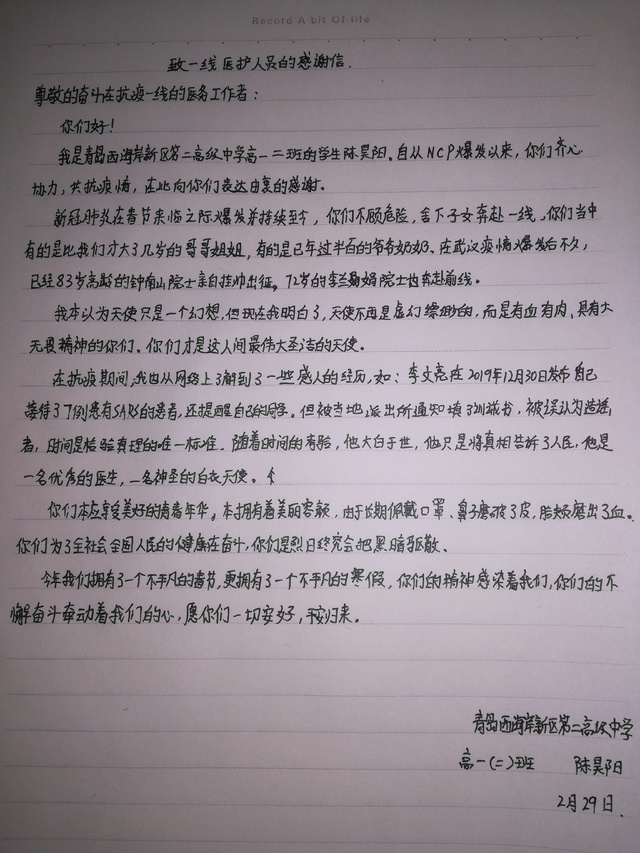 Record A bit Of life
致一线医护人员的感谢信.
尊敬的奋斗在抗疫一线的医务工作者:
你们好!
我是青岛西海岸新区第二高级中学高一二班的学生陈昊阳.自从NCP爆发以来,你们齐心
协力,共抗疫情,在此向你们表达由衷的感谢。
新冠肺炎在春节来临之际爆发并持续至今,你们不顾危险,舍下子女奔赴一线,你们当中
有的是比我们才大了几岁的哥哥姐姐,有的是已年过半百的爷爷奶奶.在武汉疫情爆发后不久,
已经83岁高龄的钟南山院士亲自挂帅出征。72岁的李兰娟院士也奔赴前线。
我本以为天使只是一个幻想,但现在我明白了,天使不再是虚幻缥缈的,而是有血有肉、具有大
无畏精神的你们.你们才是这人间最伟大圣洁的天使。
在抗疫期间,我也从网络上了解到了一些感人的经历,如:李文亮在2019年12月30日发布自己
接待了7例患有SARS的患者,还提醒自己的同学。但被当地派出所通知填训诫书,被误认为造谣
者,时间是检验真理的唯一标准.随着时间的考验,他大白于世,他只是将真相告诉了人民,他是
一名优秀的医生,一名神圣的白衣天使。
你们本应享受美好的青春年华。本拥有着美丽容颜,由于长期佩戴口罩、鼻子磨破了皮,脸颊磨出了血。
你们为了全社会全国人民的健康在奋斗,你们是烈日终究会把黑暗驱散、
今年我们拥有了一个不平凡的春节,更拥有了一个不平凡的寒假,你们的精神感染着我们,你们的不
懈奋斗牵动着我们的心,愿你们一切安好,平安归来。
青岛西海岸新区第二高级中学
高一(二)班 陈昊阳
2月29日.